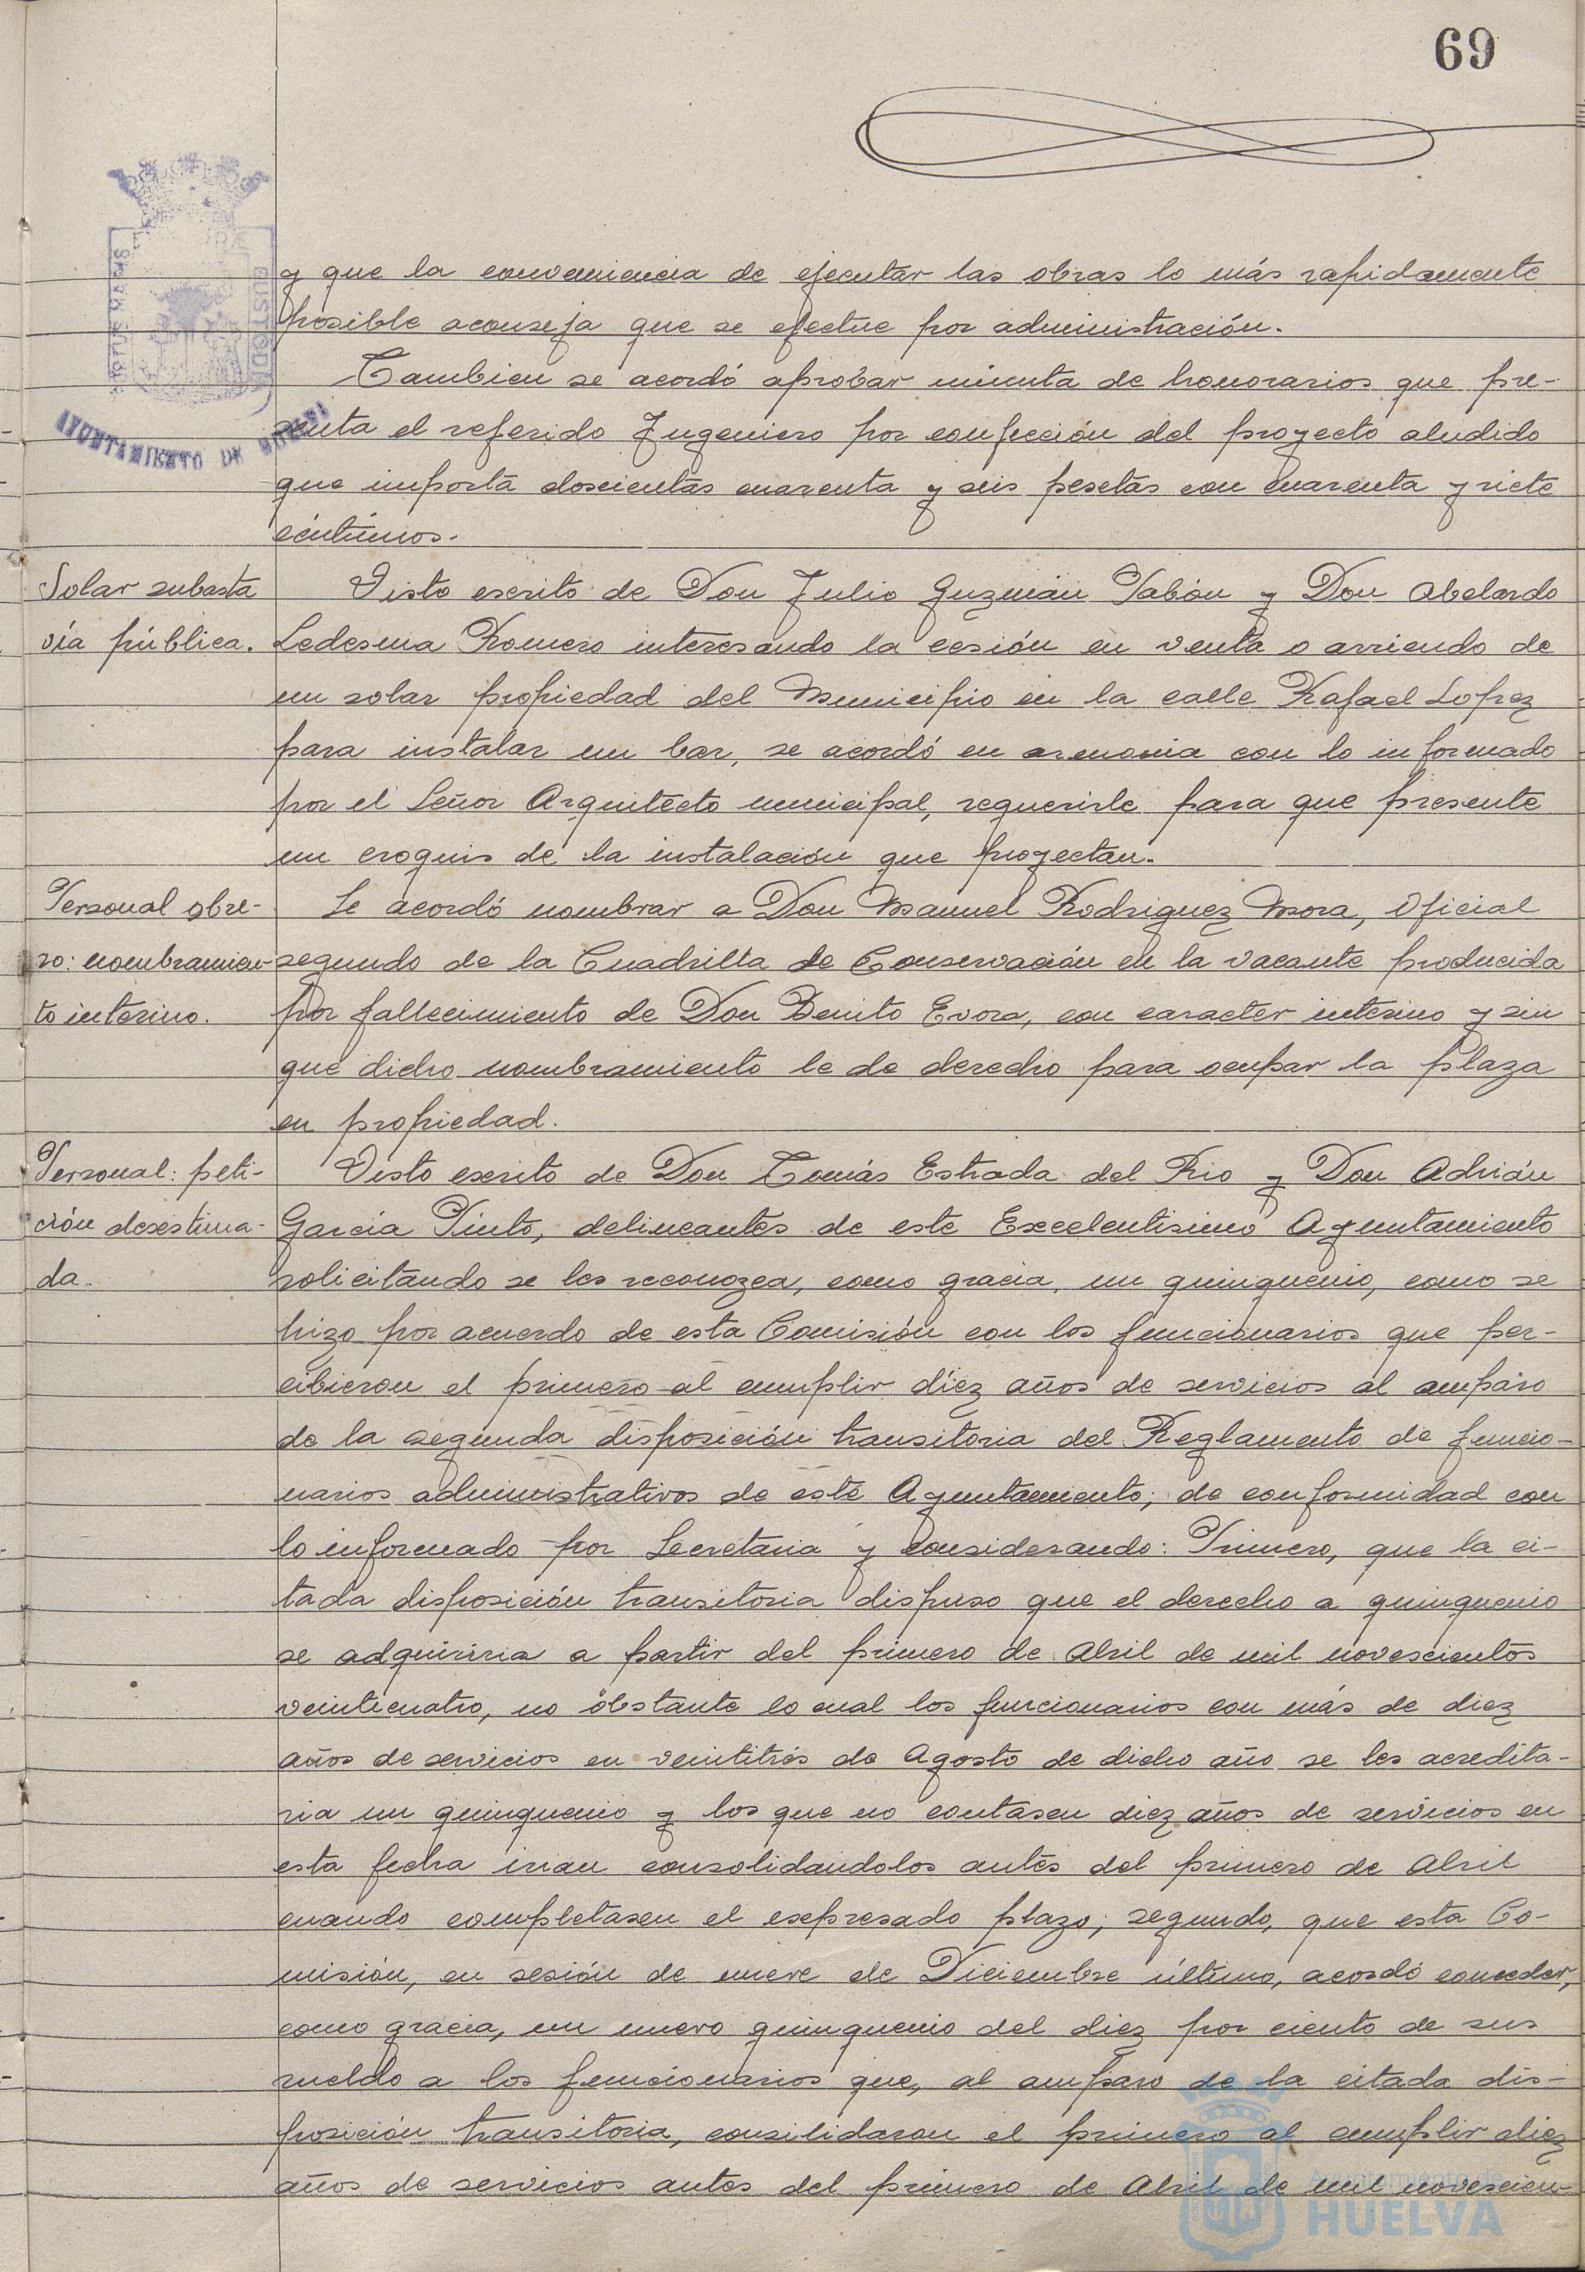 69
y que la conveniencia de ejecutar las obras lo más rapidamente
posible aconseja que se efectue por administración.
Tambien se acordó aprobar minuta de honorarios que pre-
senta el referido Ingeniero por confección del proyecto aludido
que importa doscientas cuarenta y seis pesetas con cuarenta y siete
céntimos.
AYUNTAMIENTO DE HUELVA
Solar subasta
vía pública.
Visto escrito de Don Julio Guzmán Pabón y Don Abelardo
Ledesma Romero interesando la cesión en venta o arriendo de
un solar propiedad del Municipio en la calle Rafael Lopez
para instalar un bar, se acordó en armonia con lo informado
por el Señor Arquitecto municipal, requerirle para que presente
un croquis de la instalación que proyectan.
Personal obre-
ro: nombramien-
to interino.
Se acordó nombrar a Don Manuel Rodriguez Mora, Oficial
segundo de la Cuadrilla de Conservación en la vacante producida
por fallecimiento de Don Benito Evora, con caracter interino y sin
que dicho nombramiento le de derecho para ocupar la plaza
en propiedad.
Personal: peti-
ción desestima-
da.
Visto escrito de Don Tomás Estrada del Rio y Don Adrián
García Pinto, delineantes de este Excelentisimo Ayuntamiento
solicitando se les reconozca, como gracia, un quinquenio, como se
hizo por acuerdo de esta Comisión con los funcionarios que per-
cibieron el primero al cumplir diez años de servicios al amparo
de la segunda disposición transitoria del Reglamento de funcio-
narios administrativos de este Ayuntamiento; de conformidad con
lo informado por Secretaria y considerando: Primero, que la ci-
tada disposición transitoria dispuso que el derecho a quinquenio
se adquiriria a partir del primero de Abril de mil novescientos
veinticuatro, no obstante lo cual los funcionarios con más de diez
años de servicios en veintitrés de Agosto de dicho año se les acredita-
ria un quinquenio y los que no contasen diez años de servicios en
esta fecha irian consolidandolos antes del primero de Abril
cuando completasen el esepresado plazo; segundo, que esta Co-
misión, en sesión de nueve de Diciembre último, acordó conceder,
como gracia, un nuevo quinquenio del diez por ciento de sus
sueldo a los funcionarios que, al amparo de la citada dis-
posición transitoria, consilidaron el primero al cumplir diez
años de servicios antes del primero de Abril de mil novescien-
Ayuntamiento de
HUELVA